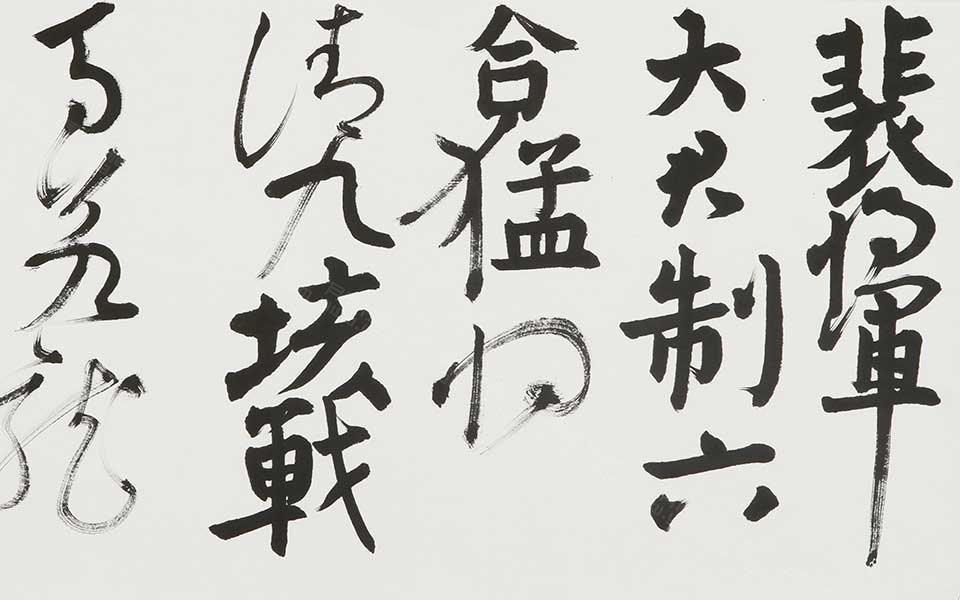 裴将軍
大君制六
合猛将
清九垓戰
馬若龍